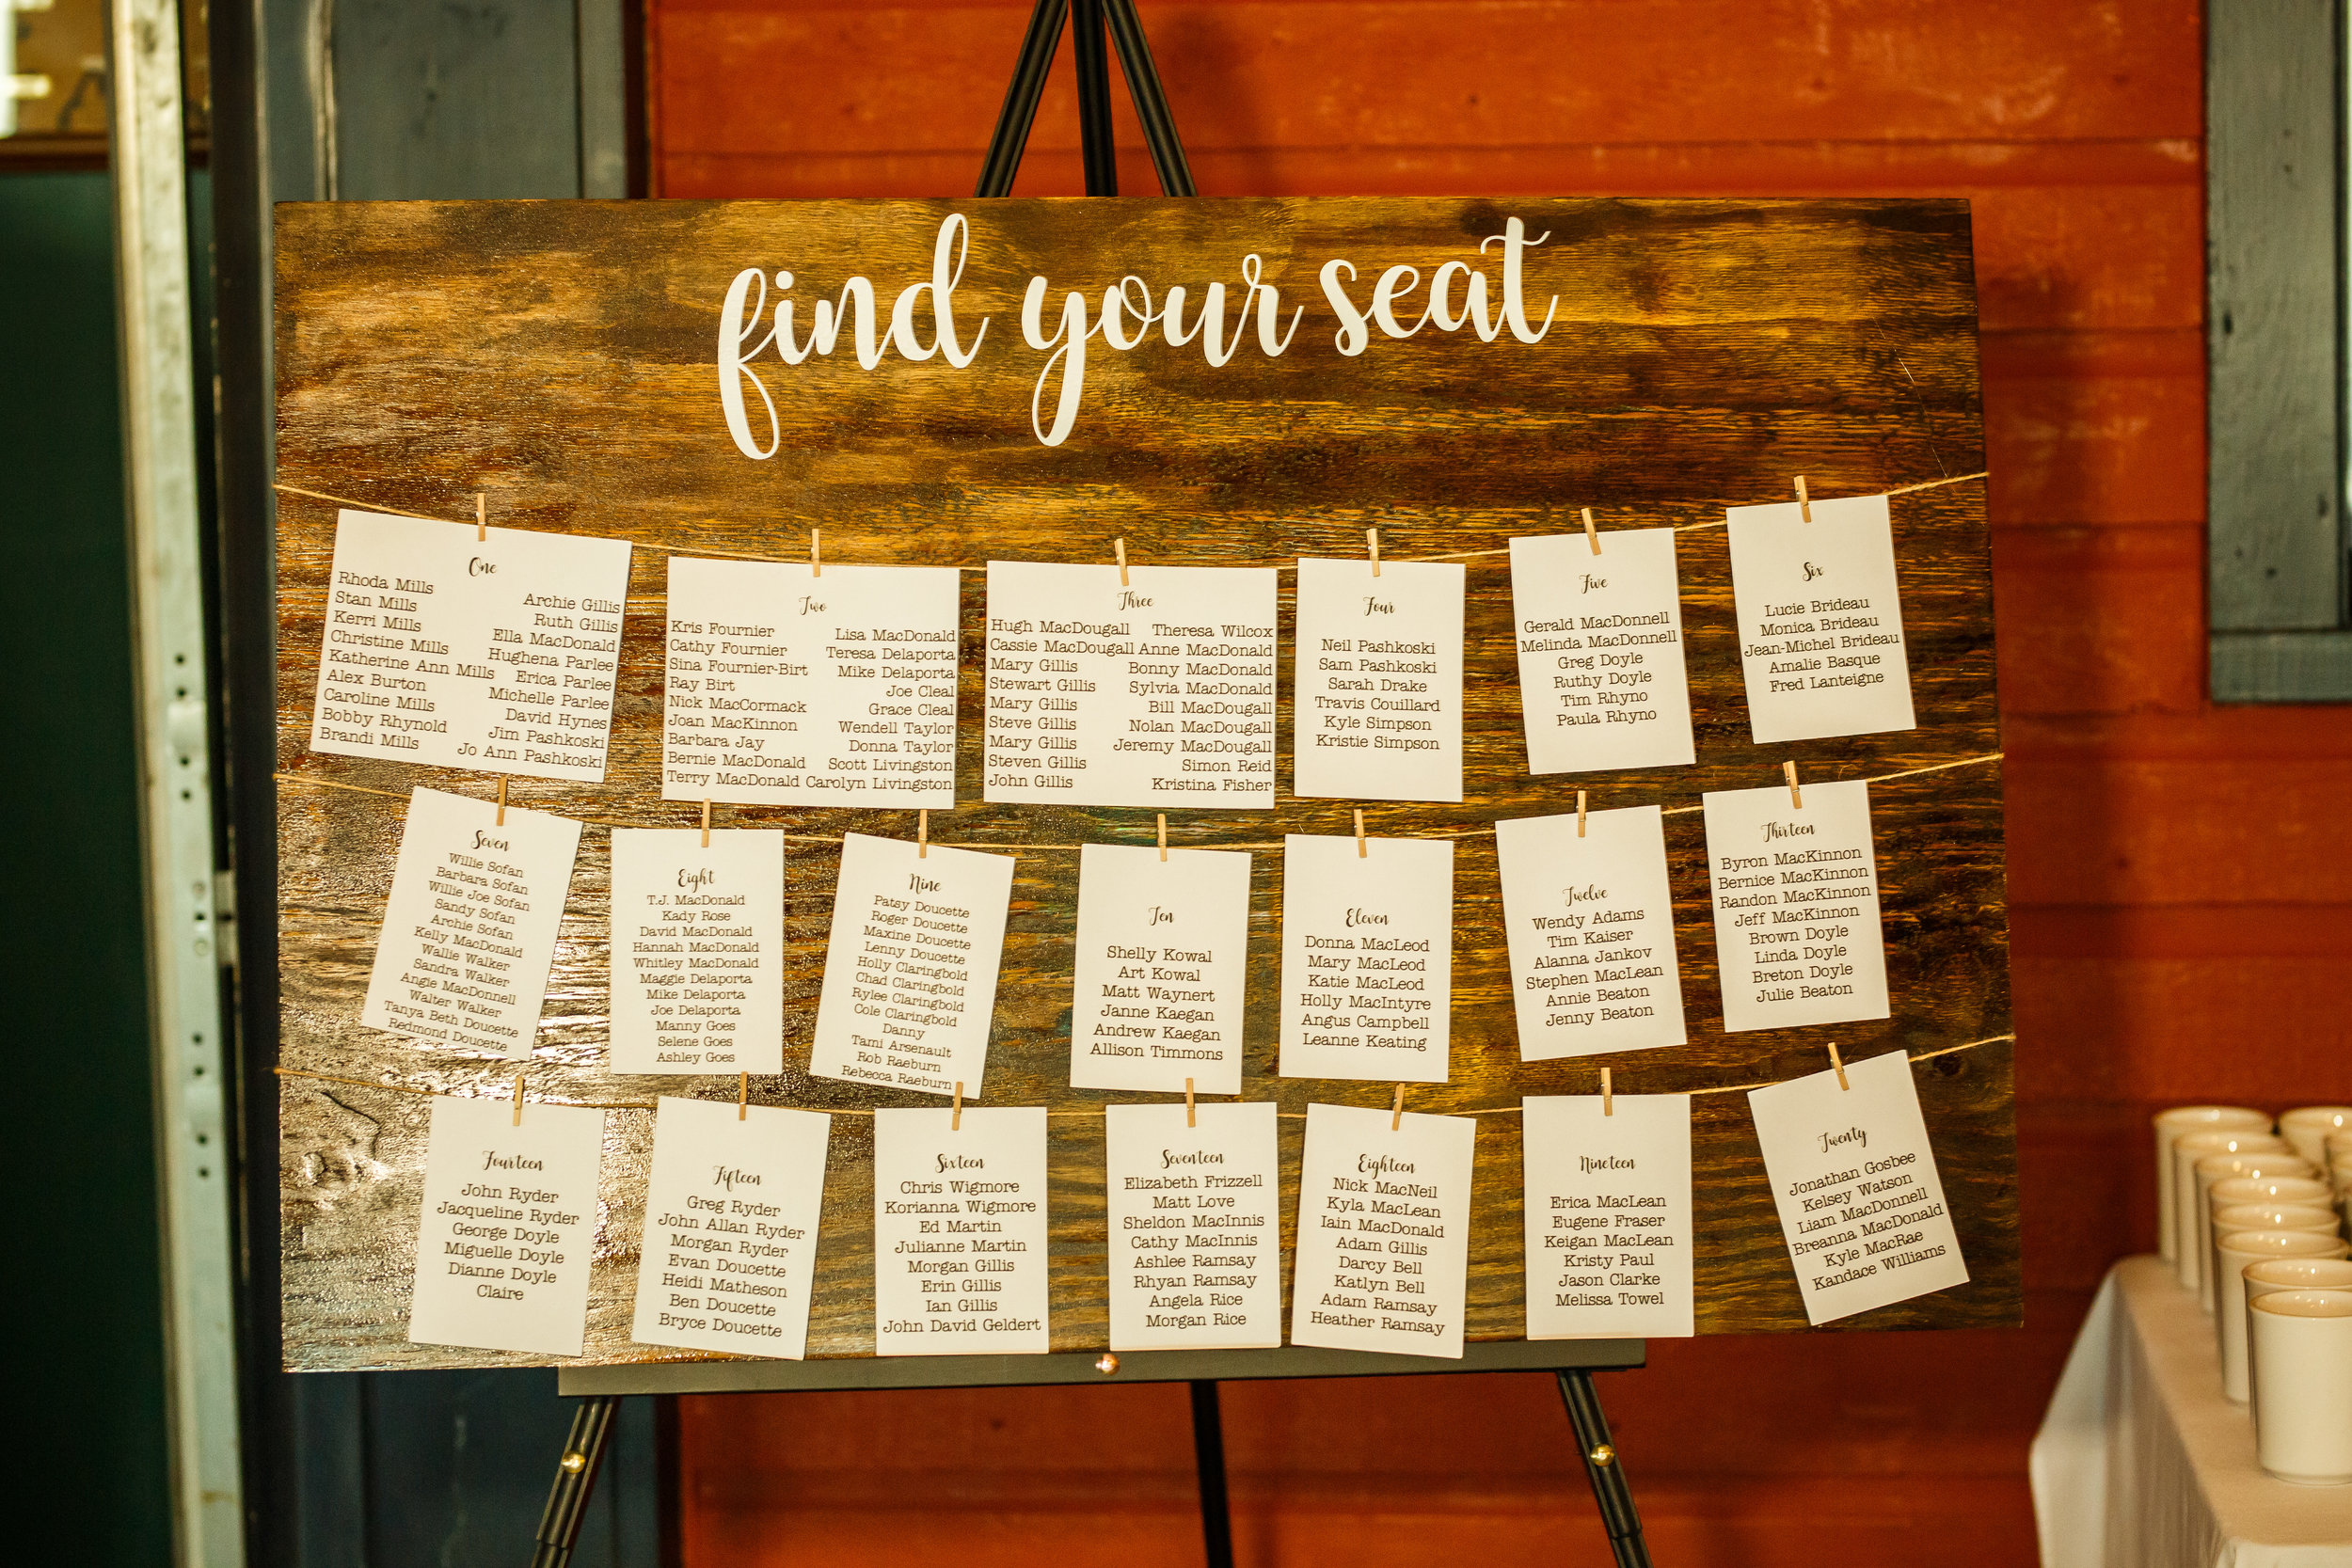 find your seat
One
Rhoda Mills
Stan Mills
Kerri Mills
Christine Mills
Katherine Ann Mills
Alex Burton
Caroline Mills
Bobby Rhynold
Brandi Mills
Archie Gillis
Ruth Gillis
Ella MacDonald
Hughena Parlee
Erica Parlee
Michelle Parlee
David Hynes
Jim Pashkoski
Jo Ann Pashkoski
Two
Kris Fournier
Cathy Fournier
Sina Fournier-Birt
Ray Birt
Nick MacCormack
Joan MacKinnon
Barbara Jay
Bernie MacDonald
Terry MacDonald
Lisa MacDonald
Teresa Delaporta
Mike Delaporta
Joe Cleal
Grace Cleal
Wendell Taylor
Donna Taylor
Scott Livingston
Carolyn Livingston
Three
Hugh MacDougall
Cassie MacDougall
Mary Gillis
Stewart Gillis
Mary Gillis
Steve Gillis
Mary Gillis
Steven Gillis
John Gillis
Theresa Wilcox
Anne MacDonald
Bonny MacDonald
Sylvia MacDonald
Bill MacDougall
Nolan MacDougall
Jeremy MacDougall
Simon Reid
Kristina Fisher
Four
Neil Pashkoski
Sam Pashkoski
Sarah Drake
Travis Couillard
Kyle Simpson
Kristie Simpson
Five
Gerald MacDonnell
Melinda MacDonnell
Greg Doyle
Ruthy Doyle
Tim Rhyno
Paula Rhyno
Six
Lucie Brideau
Monica Brideau
Jean-Michel Brideau
Amalie Basque
Fred Lanteigne
Seven
Willie Sofan
Barbara Sofan
Willie Joe Sofan
Sandy Sofan
Archie Sofan
Kelly MacDonald
Wallie Walker
Sandra Walker
Angie MacDonnell
Walter Walker
Tanya Beth Doucette
Redmond Doucette
Eight
T.J. MacDonald
Kady Rose
David MacDonald
Hannah MacDonald
Whitley MacDonald
Maggie Delaporta
Mike Delaporta
Joe Delaporta
Manny Goes
Selene Goes
Ashley Goes
Nine
Patsy Doucette
Roger Doucette
Maxine Doucette
Lenny Doucette
Holly Claringbold
Chad Claringbold
Rylee Claringbold
Cole Claringbold
Danny
Tami Arsenault
Rob Raeburn
Rebecca Raeburn
Ten
Shelly Kowal
Art Kowal
Matt Waynert
Janne Kaegan
Andrew Kaegan
Allison Timmons
Eleven
Donna MacLeod
Mary MacLeod
Katie MacLeod
Holly MacIntyre
Angus Campbell
Leanne Keating
Twelve
Wendy Adams
Tim Kaiser
Alanna Jankov
Stephen MacLean
Annie Beaton
Jenny Beaton
Thirteen
Byron MacKinnon
Bernice MacKinnon
Randon MacKinnon
Jeff MacKinnon
Brown Doyle
Linda Doyle
Breton Doyle
Julie Beaton
Fourteen
John Ryder
Jacqueline Ryder
George Doyle
Miguelle Doyle
Dianne Doyle
Claire
Fifteen
Greg Ryder
John Allan Ryder
Morgan Ryder
Evan Doucette
Heidi Matheson
Ben Doucette
Bryce Doucette
Sixteen
Chris Wigmore
Korianna Wigmore
Ed Martin
Julianne Martin
Morgan Gillis
Erin Gillis
Ian Gillis
John David Geldert
Seventeen
Elizabeth Frizzell
Matt Love
Sheldon MacInnis
Cathy MacInnis
Ashlee Ramsay
Rhyan Ramsay
Angela Rice
Morgan Rice
Eighteen
Nick MacNeil
Kyla MacLean
Iain MacDonald
Adam Gillis
Darcy Bell
Katlyn Bell
Adam Ramsay
Heather Ramsay
Nineteen
Erica MacLean
Eugene Fraser
Keigan MacLean
Kristy Paul
Jason Clarke
Melissa Towel
Twenty
Jonathan Gosbee
Kelsey Watson
Liam MacDonnell
Breanna MacDonald
Kyle MacRae
Kandace Williams